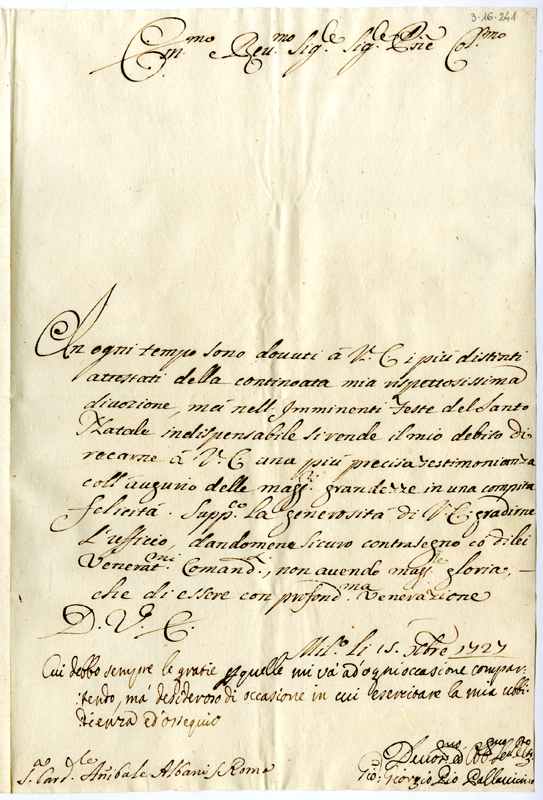 3-16-241
Em.mo e Rev.mo Sig.le Sig.le P.ne Col.mo
In ogni tempo sono dovuti à V. E. i più distinti
attestati della continoata mia rispettosissima
divozione, mà nell'Imminenti Feste del Santo
Natale indispensabile si rende il mio debito di
recarne à V. E. una più precisa testimonianza
coll'augurio delle magg.ri grandezze in una compita
felicità. Supp.co la generosità di V. E. gradirne
l'ufficio, dandomene sicuro contrasegno cò di lei
Venerat.mi Comand.i, non avendo magg.le gloria, -
che di essere con profond.ma venerazione
D. V. E.
Mil.o li 15. Xbre 1727
Cui debbo sempre le gratie p quelle mi va ad'ogni occasione compar:
:tendo, mà desideroso di occasione in cui esercitare la mia ubbi:
:dienza ed'ossequio
S.r Card.le Anibale Albani Roma
Devot.mo ed Obb.mo
Gio: Giorgio Pio Pallavicino